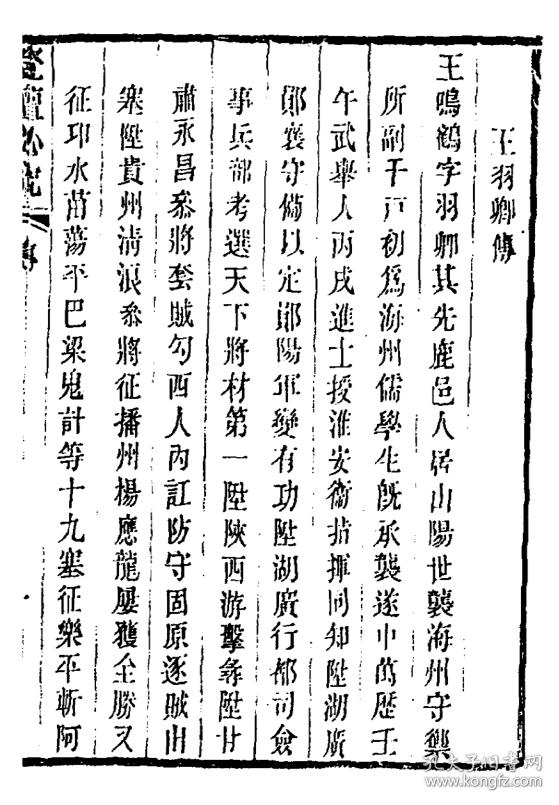 王羽卿傳
王鳴鶴字羽卿其先鹿邑人居山陽世襲海州守禦
所副千戸初爲海州儒學生旣承襲遂中萬歷壬
午武舉人丙戌進士授淮安衞指揮同知陞湖廣
鄖襄守備以定鄖陽軍變有功陞湖廣行都司僉
事兵部考選天下將材第一陞陝西游擊彛陞甘
肅永昌叅將套賊勾西人內訌防守固原逐賊出
塞陞貴州淸浪叅將征播州楊應龍屢獲全勝又
征卭水苗蕩平巴梁鬼計等十九塞征樂平斬阿
登壇必究
傳
孔夫子旧书网
www.kongfz.com